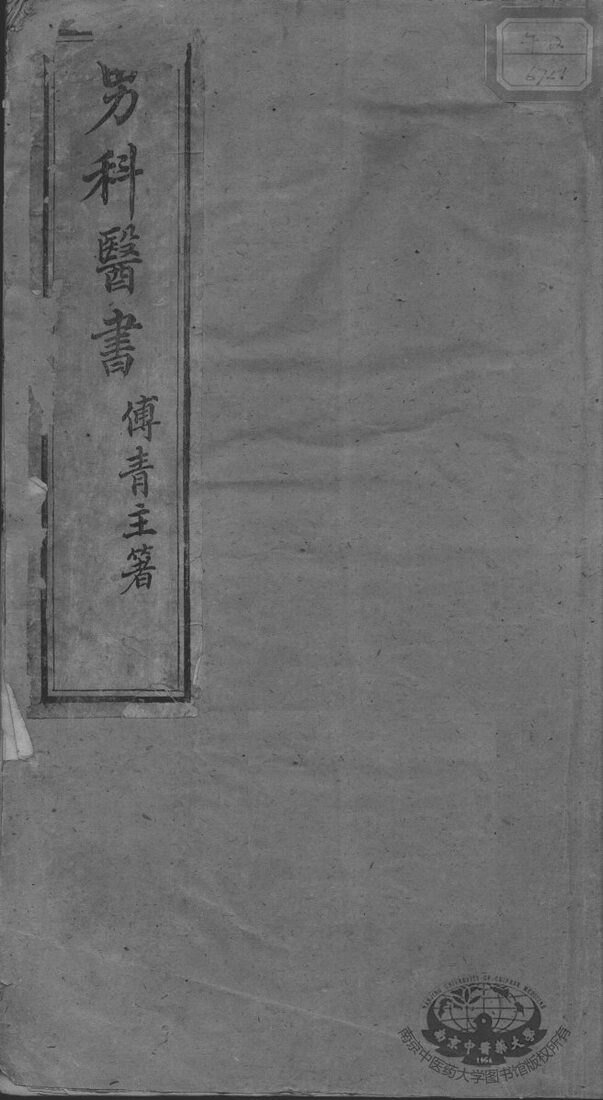 男科醫書
傅青主著
6721
NANJING UNIVERSITY OF CHINESE MEDICINE
南京中醫藥大學
1954
南京中医药大学图书馆版权所有